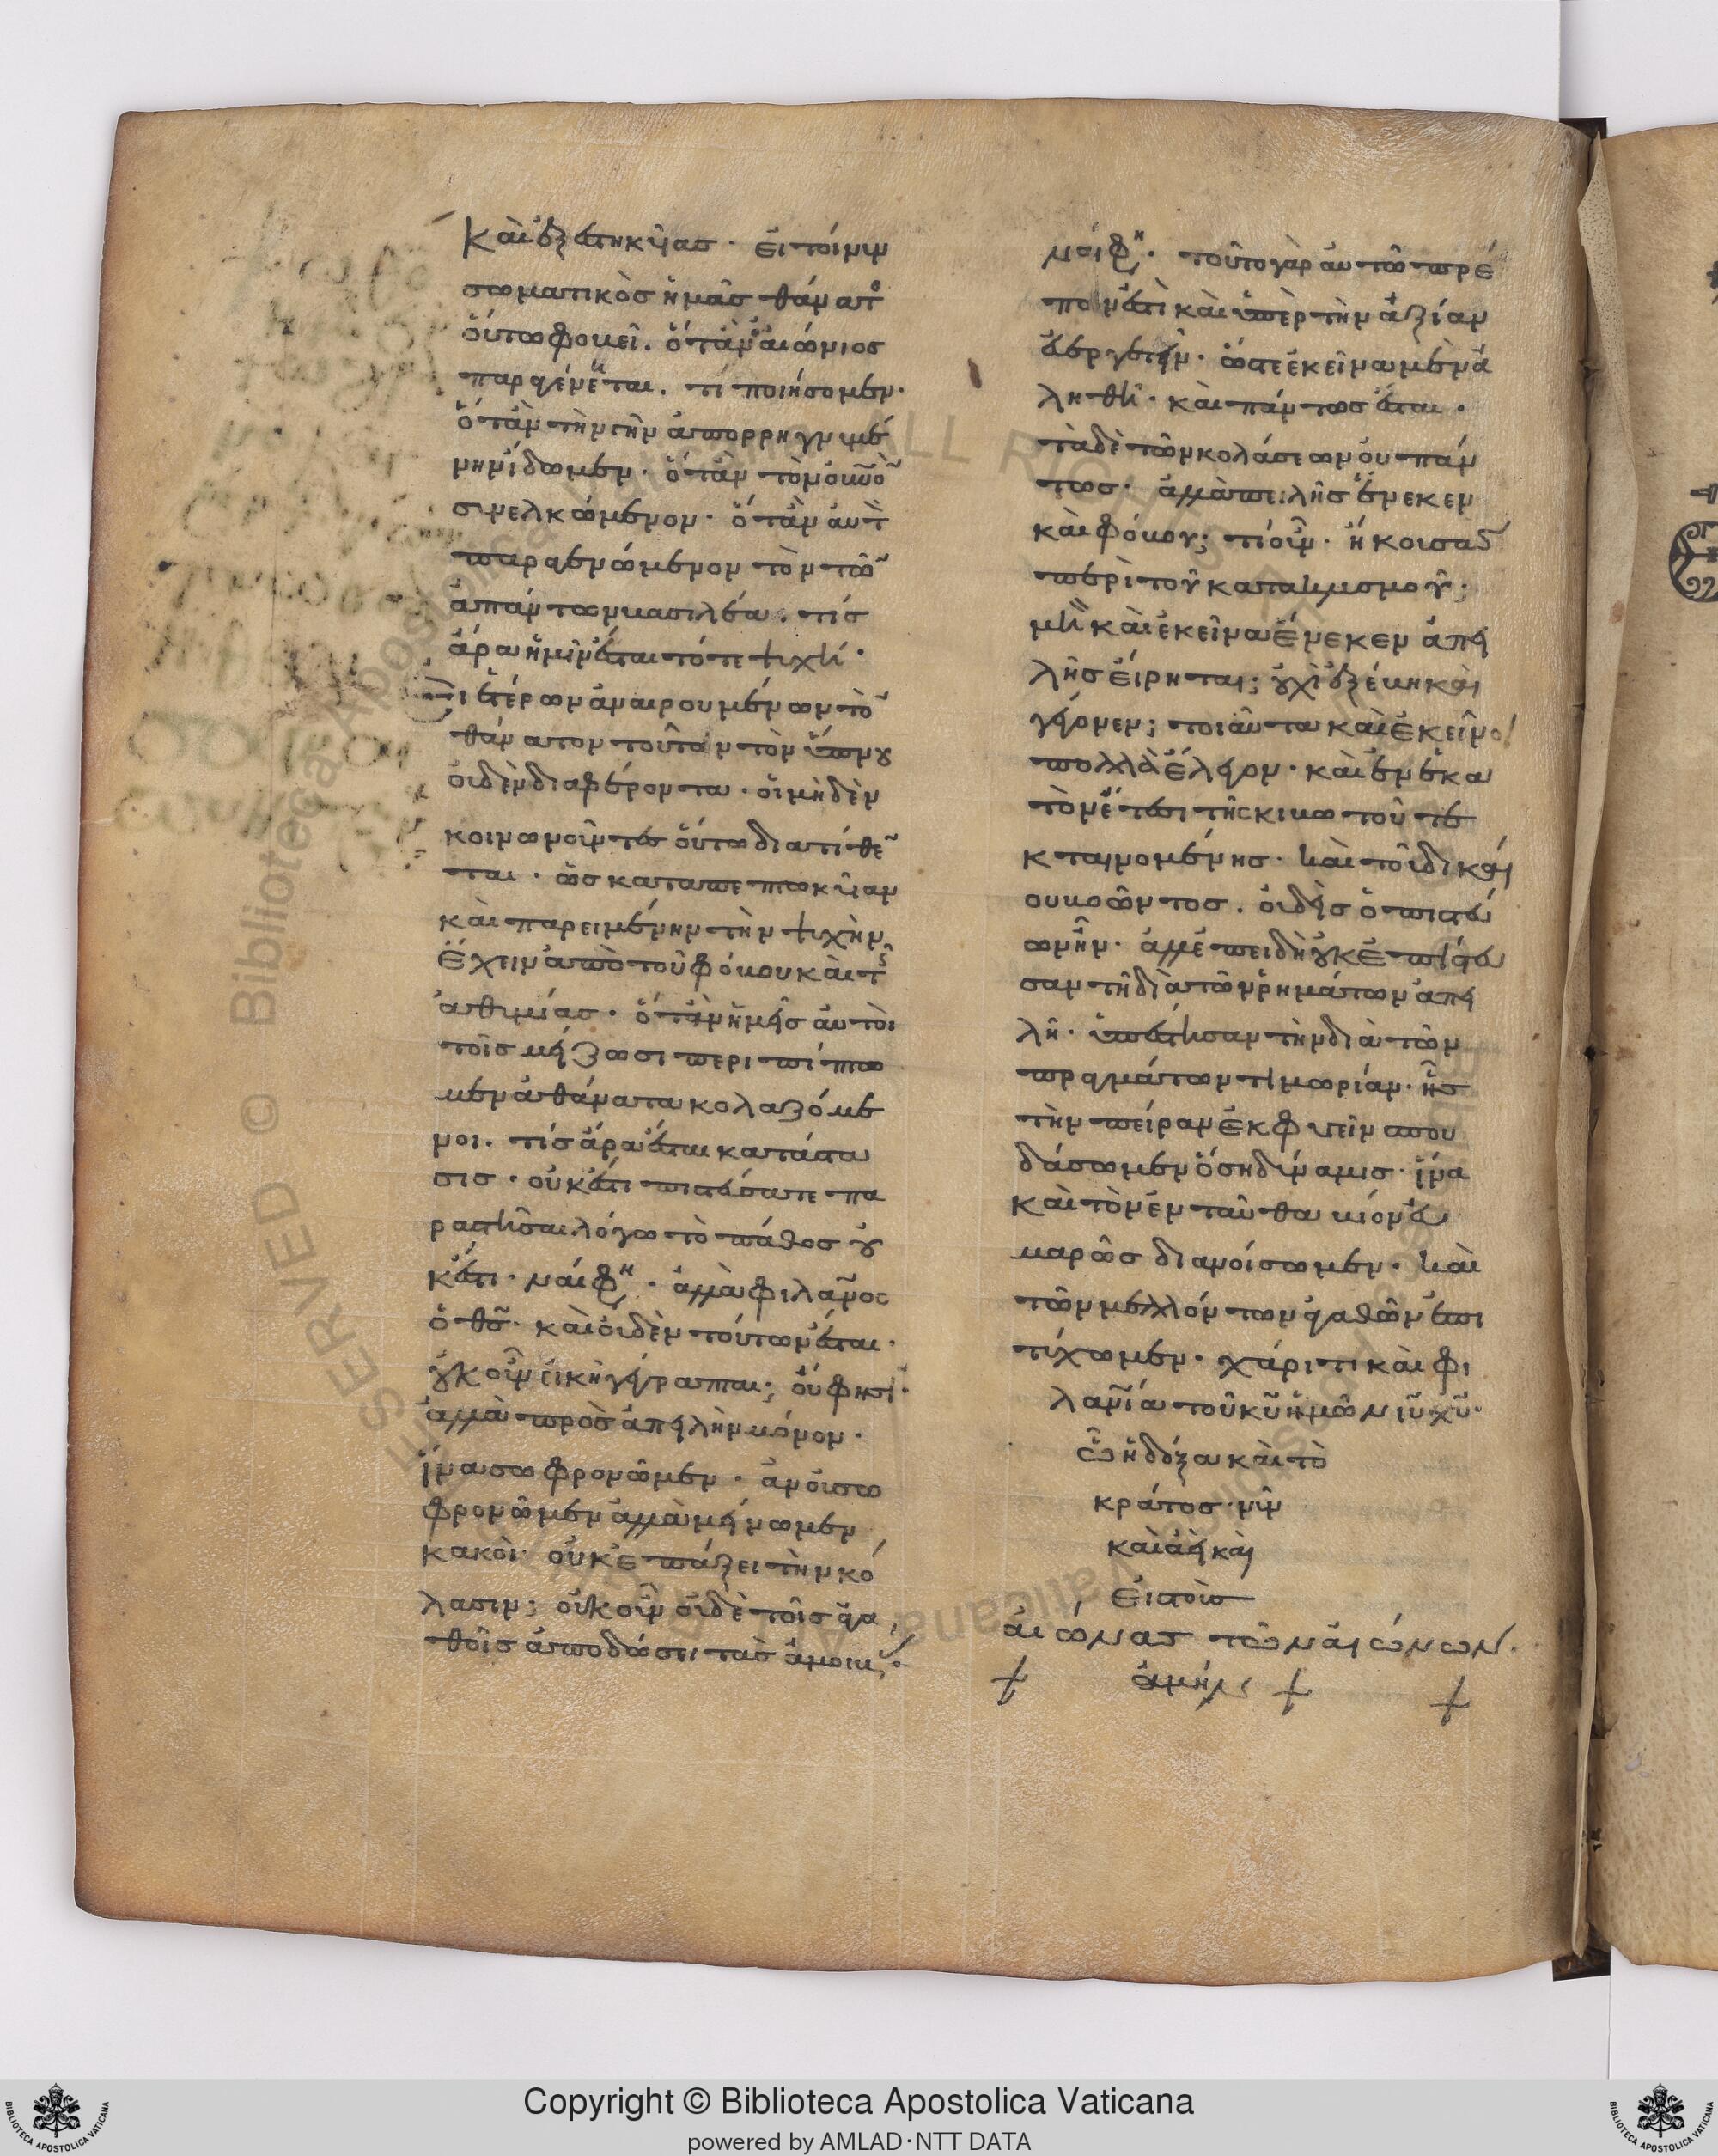 Καὶ ἐξεστηκυίας · εἰ τοίνυν
σωματικὸς ἡμᾶς θάνατος
οὕτω φοβεῖ . ὅταν ὁ αἰώνιος
παραγένηται . τί ποιήσομεν ·
ὅταν τὴν γῆν ἀπορρηγνυμέ
νην ἴδωμεν · ὅταν τὸν οὐνὸν
συνελκώμενον · ὅταν αὐτὸν
παραγενώμενον τὸν τῶν
ἁπάντων βασιλέα . τίς
ἄρα ἡμῖν ἔσται τότε ψυχή ·
Εἰ ἑτέρων ἀναιρουμένων τὸν
θάνατον τοῦτον τὸν ὕπνου
οὐδὲν διαφέροντα · οἱ μηδὲν
κοινωνοῦντες οὕτω διατίθεν
ται · ὡς καταπεπτωκυῖαν
καὶ παρειμένην τὴν ψυχὴν
ἔχειν ἀπὸ τοῦ φόβου καὶ τῆς
ἀθυμίας · ὅταν ἡμεῖς αὐτοὶ
τοῖς μείζωσι περιπίπτω
μεν ἀθάνατα κολαζόμε
νοι . τίς ἄρα ἔσται κατάστα
σις · οὐκ ἔστι πιστεύσατε πα
ραστῆσαι λόγω τὸ πάθος οὐ
κ ἔστι · ναί φη · ἀλλὰ φιλανος
ὁ θς · καὶ οὐδὲν τούτων ἔσται ·
οὐκοῦν εἰκῆ γέγραπται ; οὔ φησὶν ·
ἀλλὰ πρὸς ἀπειλὴν μόνον ·
ἵνα σωφρονῶμεν · ἂν οὖν σω
φρονῶμεν ἀλλὰ μείνωμεν
κακοὶ οὐκ ἐπάξει τὴν κό
λασιν ; οὐκοῦν οὐδὲ τοῖς ἀγα
θοῖς ἀποδώσει τὰς ἀμοιβάς ·
ναί φη · τοῦτο γὰρ αὐτῶ πρέ
πον ἐστὶ καὶ ὑπὲρ τὴν ἀξίαν
εὐεργετεῖν · ὥστε ἐκεῖνα μὲν ἀ
ληθῆ · καὶ πάντως ἔσται ·
τὰ δὲ τῶν κολάσεων οὐ πάν
τως · ἀλλὰ ἀπειλῆς ἕνεκεν
καὶ φόβου ; τί οὖν · ἤκουσας
περὶ τοῦ κατακλυσμοῦ ;
μὴ καὶ ἐκεῖνα ἕνεκεν ἀπει
λῆς εἴρηται ; οὐχὶ ἐξέβη καὶ
γέγονεν ; τοιαῦτα καὶ ἐκεῖνοι
πολλὰ ἔλεγον · καὶ ἐν ἑκα
τὸν ἔτεσι τῆς κιβωτοῦ τε
κταινομένης · καὶ τοῦ δικαί
ου βοῶντος . οὐδεὶς ὁ πιστεύ
ων ἦν · ἀλλ ἐπειδὴ οὐκ ἐπίστευ
σαν τῆ διὰ τῶν ῥημάτων ἀπει
λῆ · ὑπέστησαν τὴν διὰ τῶν
πραγμάτων τιμωρίαν · ἧς
τὴν πεῖραν ἐκφυγεῖν σπου
δάσωμεν ὅση δύναμις · ἵνα
καὶ τὸν ἐνταῦθα βίον εὐ
μαρῶς διανοίσωμεν · καὶ
τῶν μελλόντων ἀγαθῶν ἐπι
τύχωμεν · χάριτι καὶ φι
λανία τοῦ κυ ἡμῶν ιυ χυ ·
ὧ ἡ δόξα καὶ τὸ
κράτος · νῦν
καὶ ἀεὶ καὶ
εἰς τοὺς
αἰώνας τῶν αἰώνων .
+ ἀμήν + +
Copyright © Biblioteca Apostolica Vaticana
powered by AMLAD·NTT DATA